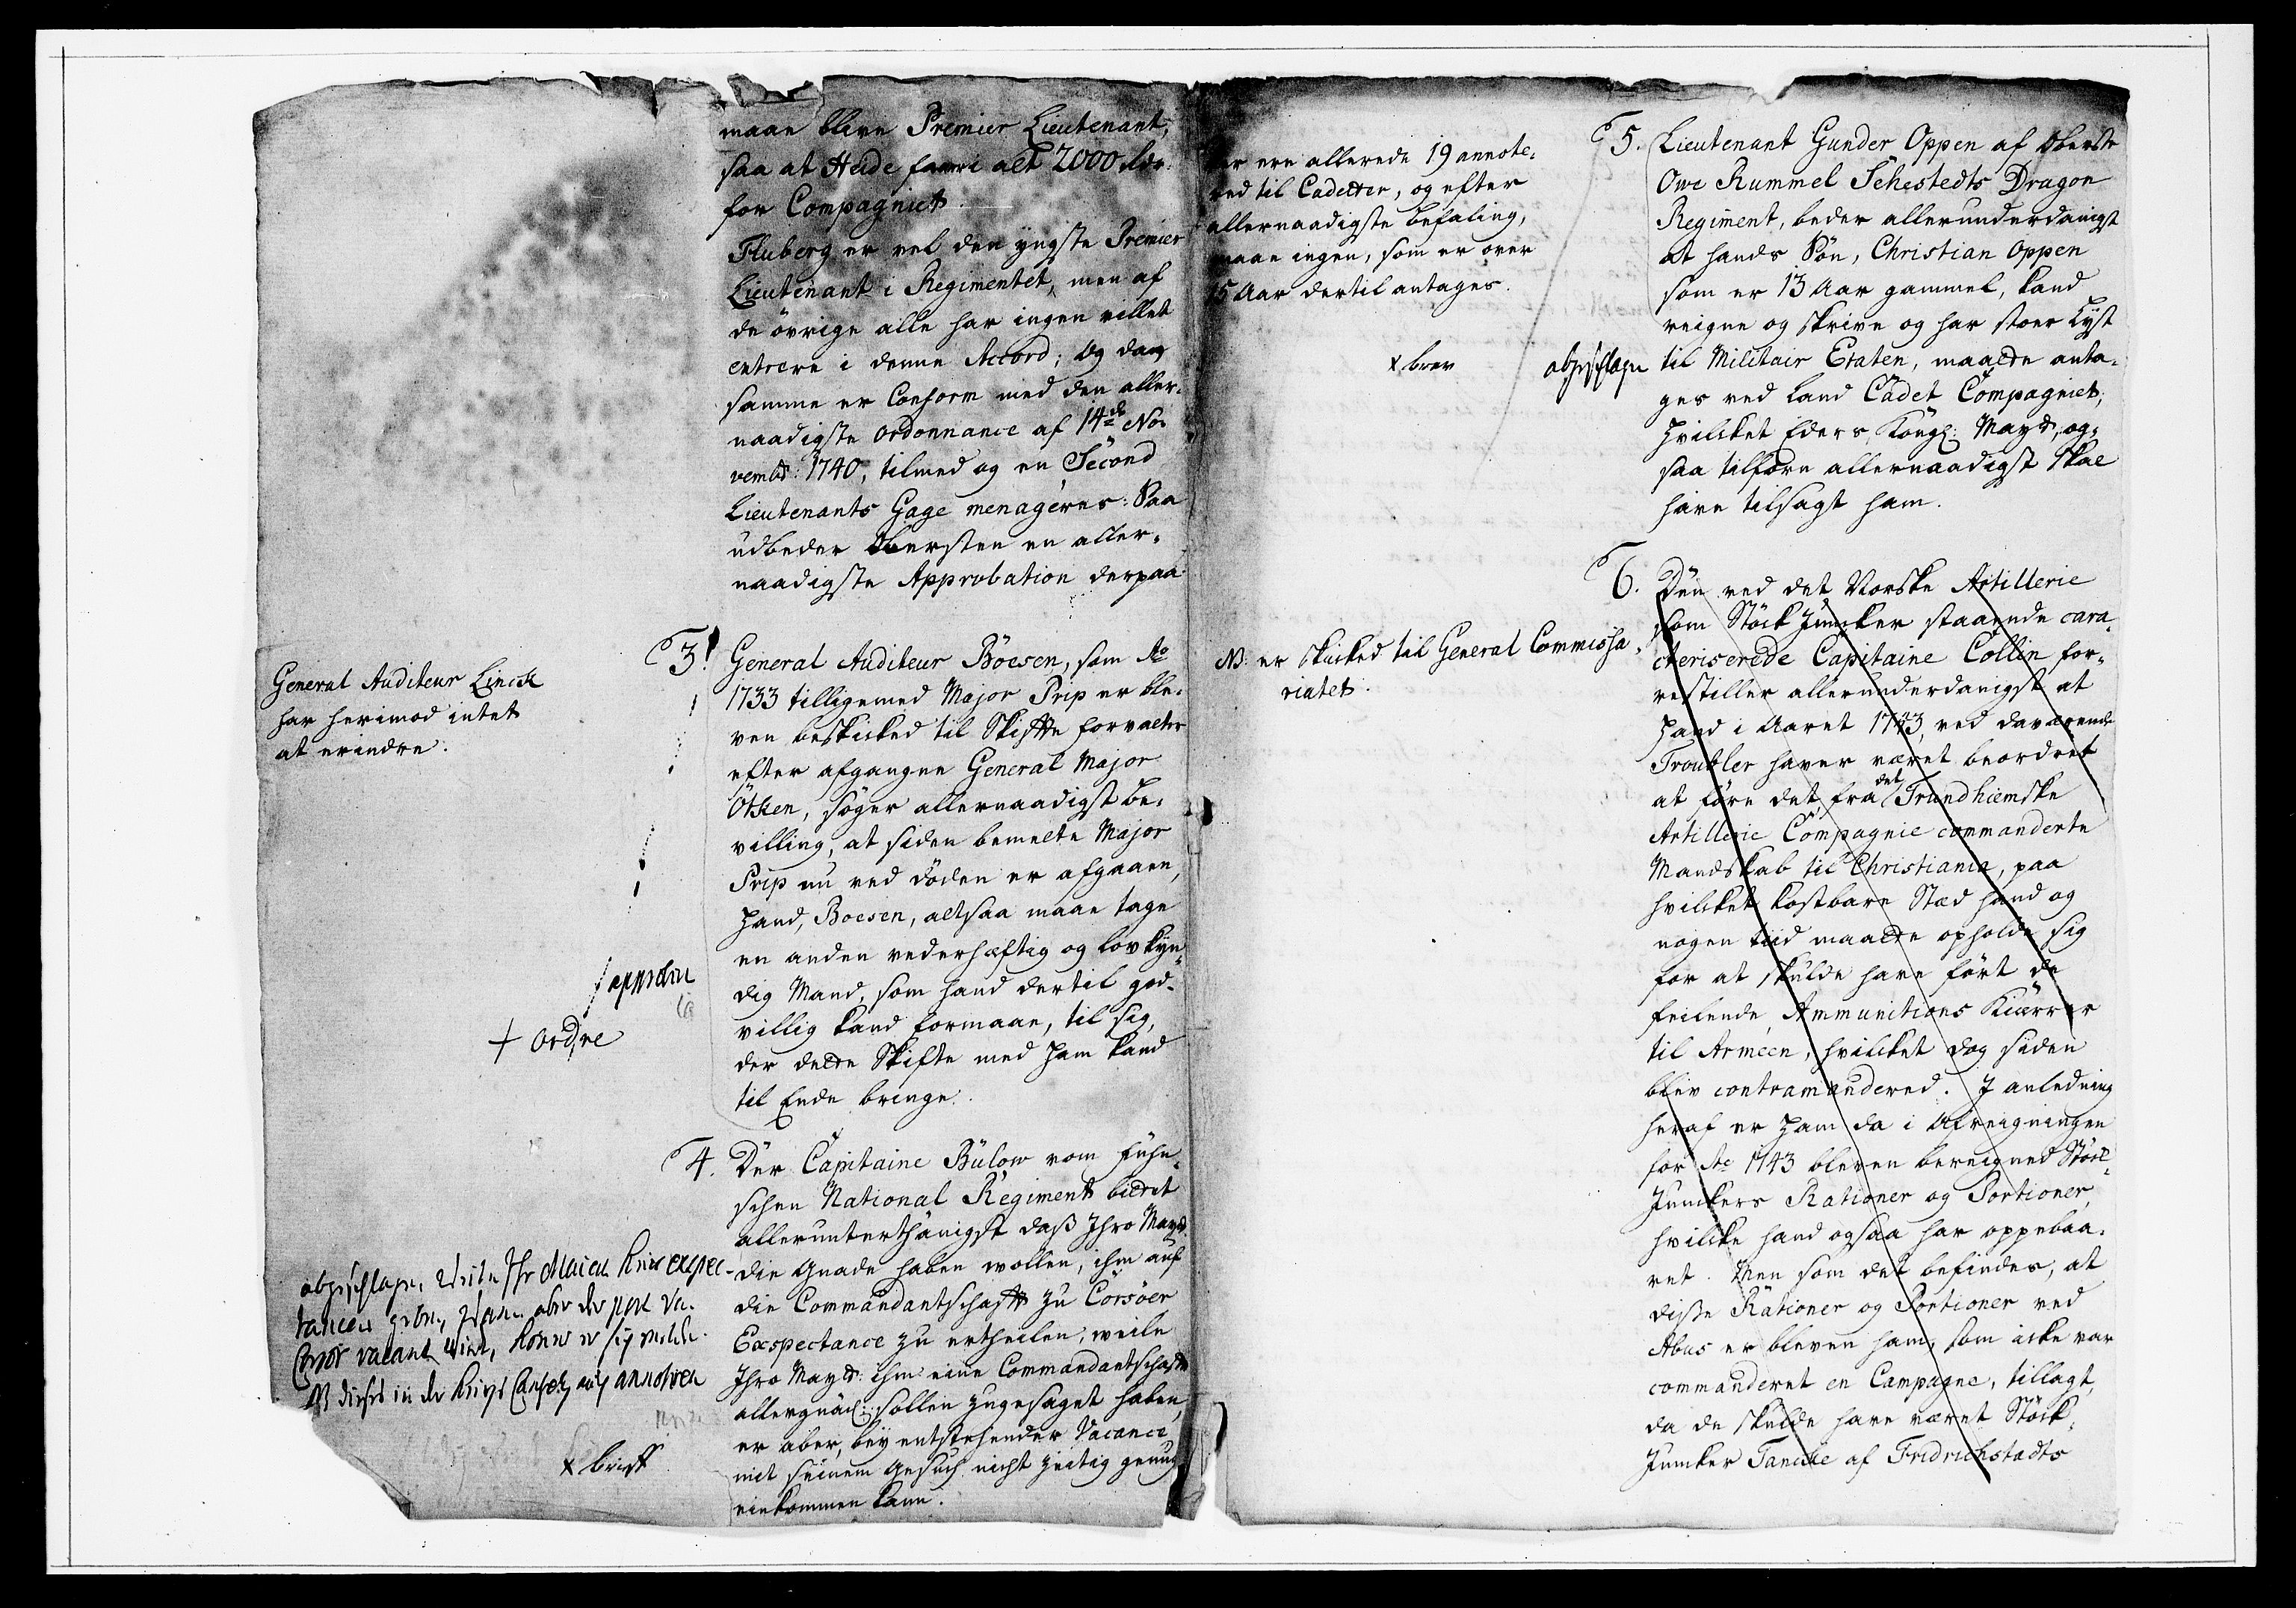 maae blive Premier Lieutenant,
saa at Heide faaer i alt 2000 rdr
for Compagniet.
Fluberg er vel den yngste Premier
Lieutenant i Regimentet, men af
de övrige alle har ingen villet
entrere i denne Accord; Og da
samme er Conform med den aller-
naadigste ordonnance af 14de No-
vembr: 1740, tilmed og en Second
Lieutenants Gage menageres: Saa
udbeder Obersten en aller-
naadigste Approbation derpaa
General Auditeur Linck
har herimod intet
at erindre.
3. General Auditeur Böesen, som Ao
1733 tilligemed Major Prip er ble-
ven beskicked til Skiffte forvalter
efter afgangne General Major
Ötken, söger allernaadigst be-
villing, at siden bemelte Major
Prip nu ved döden er afgaaen,
hand, Boesen, altsaa maae tage
en anden vederhæftig og lovkyn-
dig Mand, som hand dertil god-
villig kand formaae, til sig,
der dette Skifte med ham kand
til Ende bringe.
approbn
+ ordre
4. Der Capitaine Bülow vom Fühn-
schen National Regiment bittet
allerunterthänigst daß Ihro Mayt.
die Gnade haben wollen, ihm auf
die Commandantschafft zu Corsöer
Exspectance zu ertheilen, weile
Ihro Mayt: ihm eine Commandantschafft
allergnäd: sollen zugesaget haben,
er aber, bey entstehender Vacance
mit seinem Gesuch nicht zeitig genug
einkommen kann.
abgeschlagen, Weile Ihr Maien keine expec-
tancen geben, wan aber der post in
Corsör vacant wird, könne er sig melde.
NB dieses in der Kriegs Cancely auch annotiren
x brieff
Der ere allerede 19 annote-
red til Cadetter, og efter
allernaadigste befaling,
maae ingen, som er over
15 Aar dertil antages.
x brev
abgeschlagen
5. Lieutenant Gunder Oppen af Oberste
Owe Rummel Sehestedts Dragon
Regiment, beder allerunderdanigst
at hands Sön, Christian Oppen
som er 13 Aar gammel, kand
reigne og skrive og har stoer Lyst
til Militair Etaten, maatte anta-
ges ved Land Cadet Compagniet,
hvilcket Eders Kongl: Mayt, og-
saa tilforn allernaadigst skal
have tilsagt ham.
NB: er skicked til General Commissa-
riatet.
6. Den ved det Norske Artillerie
som Stöck Juncker staaende cara-
cteriserede Capitaine Collin fore-
restiller allerunderdanigst at
hand i Aaret 1743, ved daværende
Troubler haver været beordret
at före det fra det Trundhiemske
Artillerie Compagnie commanderte
Mandskab til Christiania, paa
hvilcket kostbare Stæd hand og
nogen tiid maatte opholde sig
for at skulde have fört de
feilende Ammunitions Kiærrer
til Armeen, hvilcket dog siden
blev contramandered. I anledning
heraf er ham da i Afreigningen
for Ao 1743 bleven bereigned Stöck-
Junckers Rationer og Portioner,
hvilcke hand ogsaa har oppebaa-
ret. Men som det befindes, at
disse Rationer og Portioner ved
Abus er bleven ham, som icke var
commanderet en Campagne, tillagt,
da de skulde have været Stöck-
Juncker Tancke af Fridrichstadts